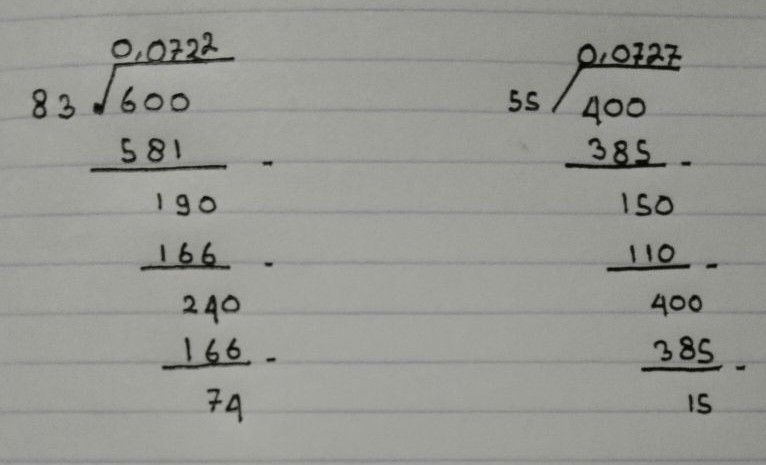 0,0722
83 √600
581 -
190
166 -
240
166 -
74
0,0727
55 / 400
385 -
150
110 -
400
385 -
15